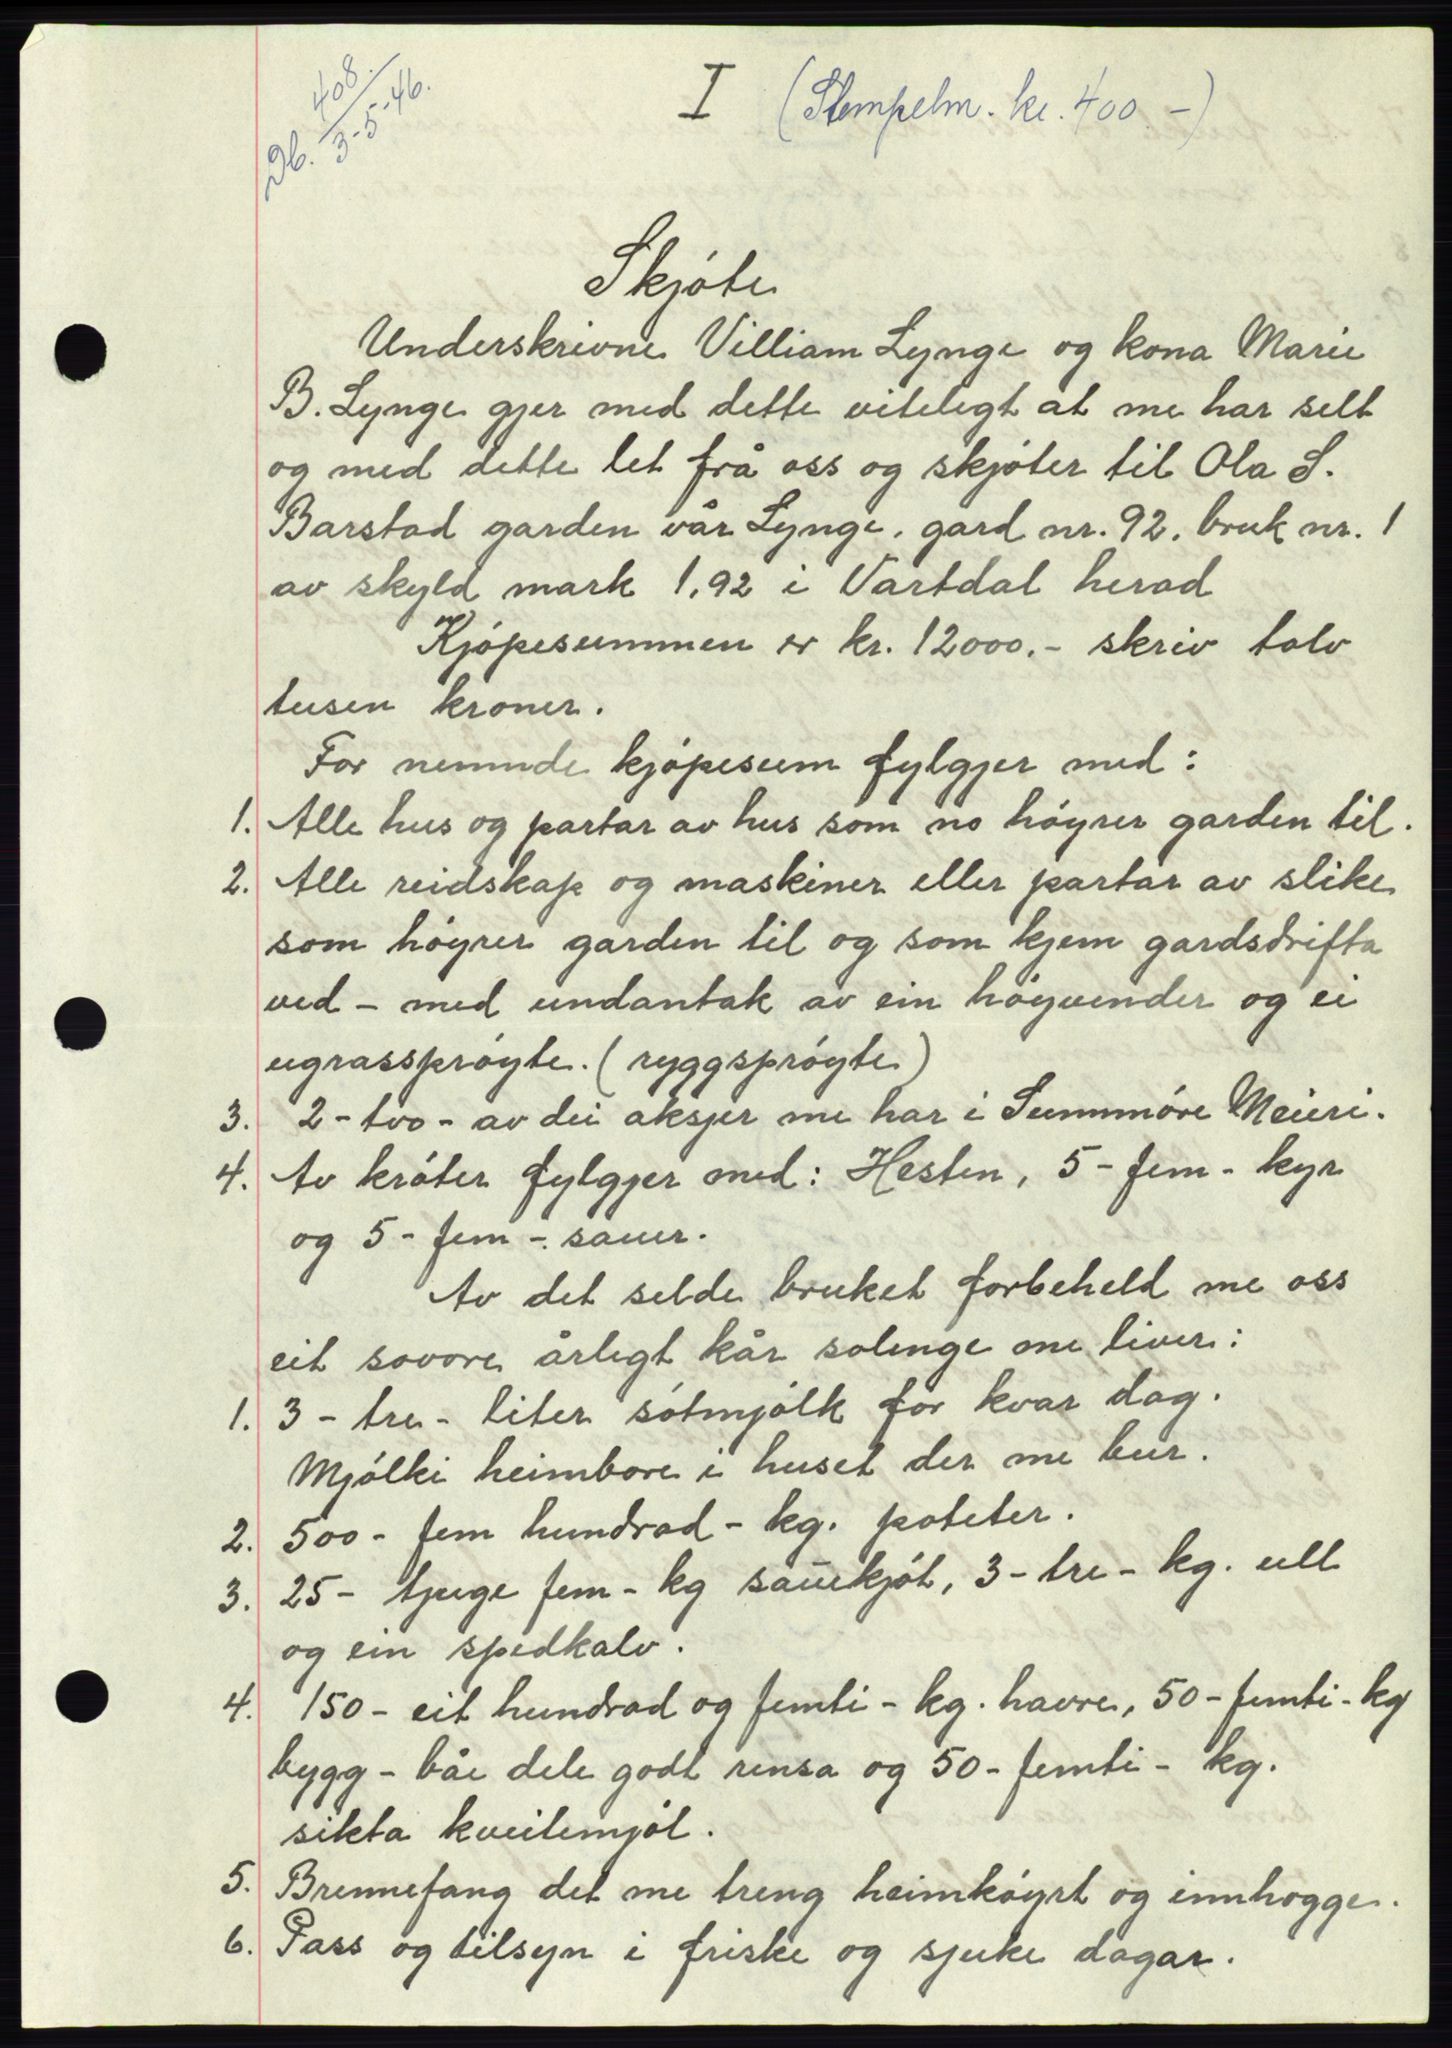 Db. 408
3-5-46.
I (Stempelm. kr. 400.-)
Skjóte
Underskrivne Villiam Lynge og kona Marie
B. Lynge gjer med dette vitelegt at me har selt
og med dette let frå oss og skjóter til Ola S.
Barstad garden vår Lynge, gard nr. 92. bruk nr. 1
av skyld mark 1,92 i Vartdal herad
Kjópesummen er kr. 12000.- skriv tolv
tusen kroner.
For nemnde kjópesum fylgjer med:
1. Alle hus og partar av hus som no hóyrer garden til.
2. Alle reidskap og maskiner eller partar av slike
som hóyrer garden til og som kjem gardsdrifta
ved - med undantak av ein hóyvender og ei
ugrassprόyte. (ryggspróyte)
3. 2 - tvo - av dei aksjer me har i Sunnmóre Meieri.
4. Av króter fylgjer med: Hesten, 5 - fem - kyr
og 5 - fem - sauer.
Av det selde bruket forbeheld me oss
eit sovore årlegt kår solenge me liver:
1. 3 - tre - liter sótmjólk for kvar dag.
Mjólki heimbore i huset der me bur.
2. 500 - fem hundrad - kg. poteter.
3. 25 - tjuge fem - kg sauekjót, 3 - tre - kg. ull
og ein spedkalv.
4. 150 - eit hundrad og femti - kg. havre, 50 - femti - kg
bygg - båe dele godt rensa og 50 - femti - kg.
sikta kveitemjól.
5. Brennefang det me treng heimkóyrt og innhogge.
6. Pass og tilsyn i friske og sjuke dagar.